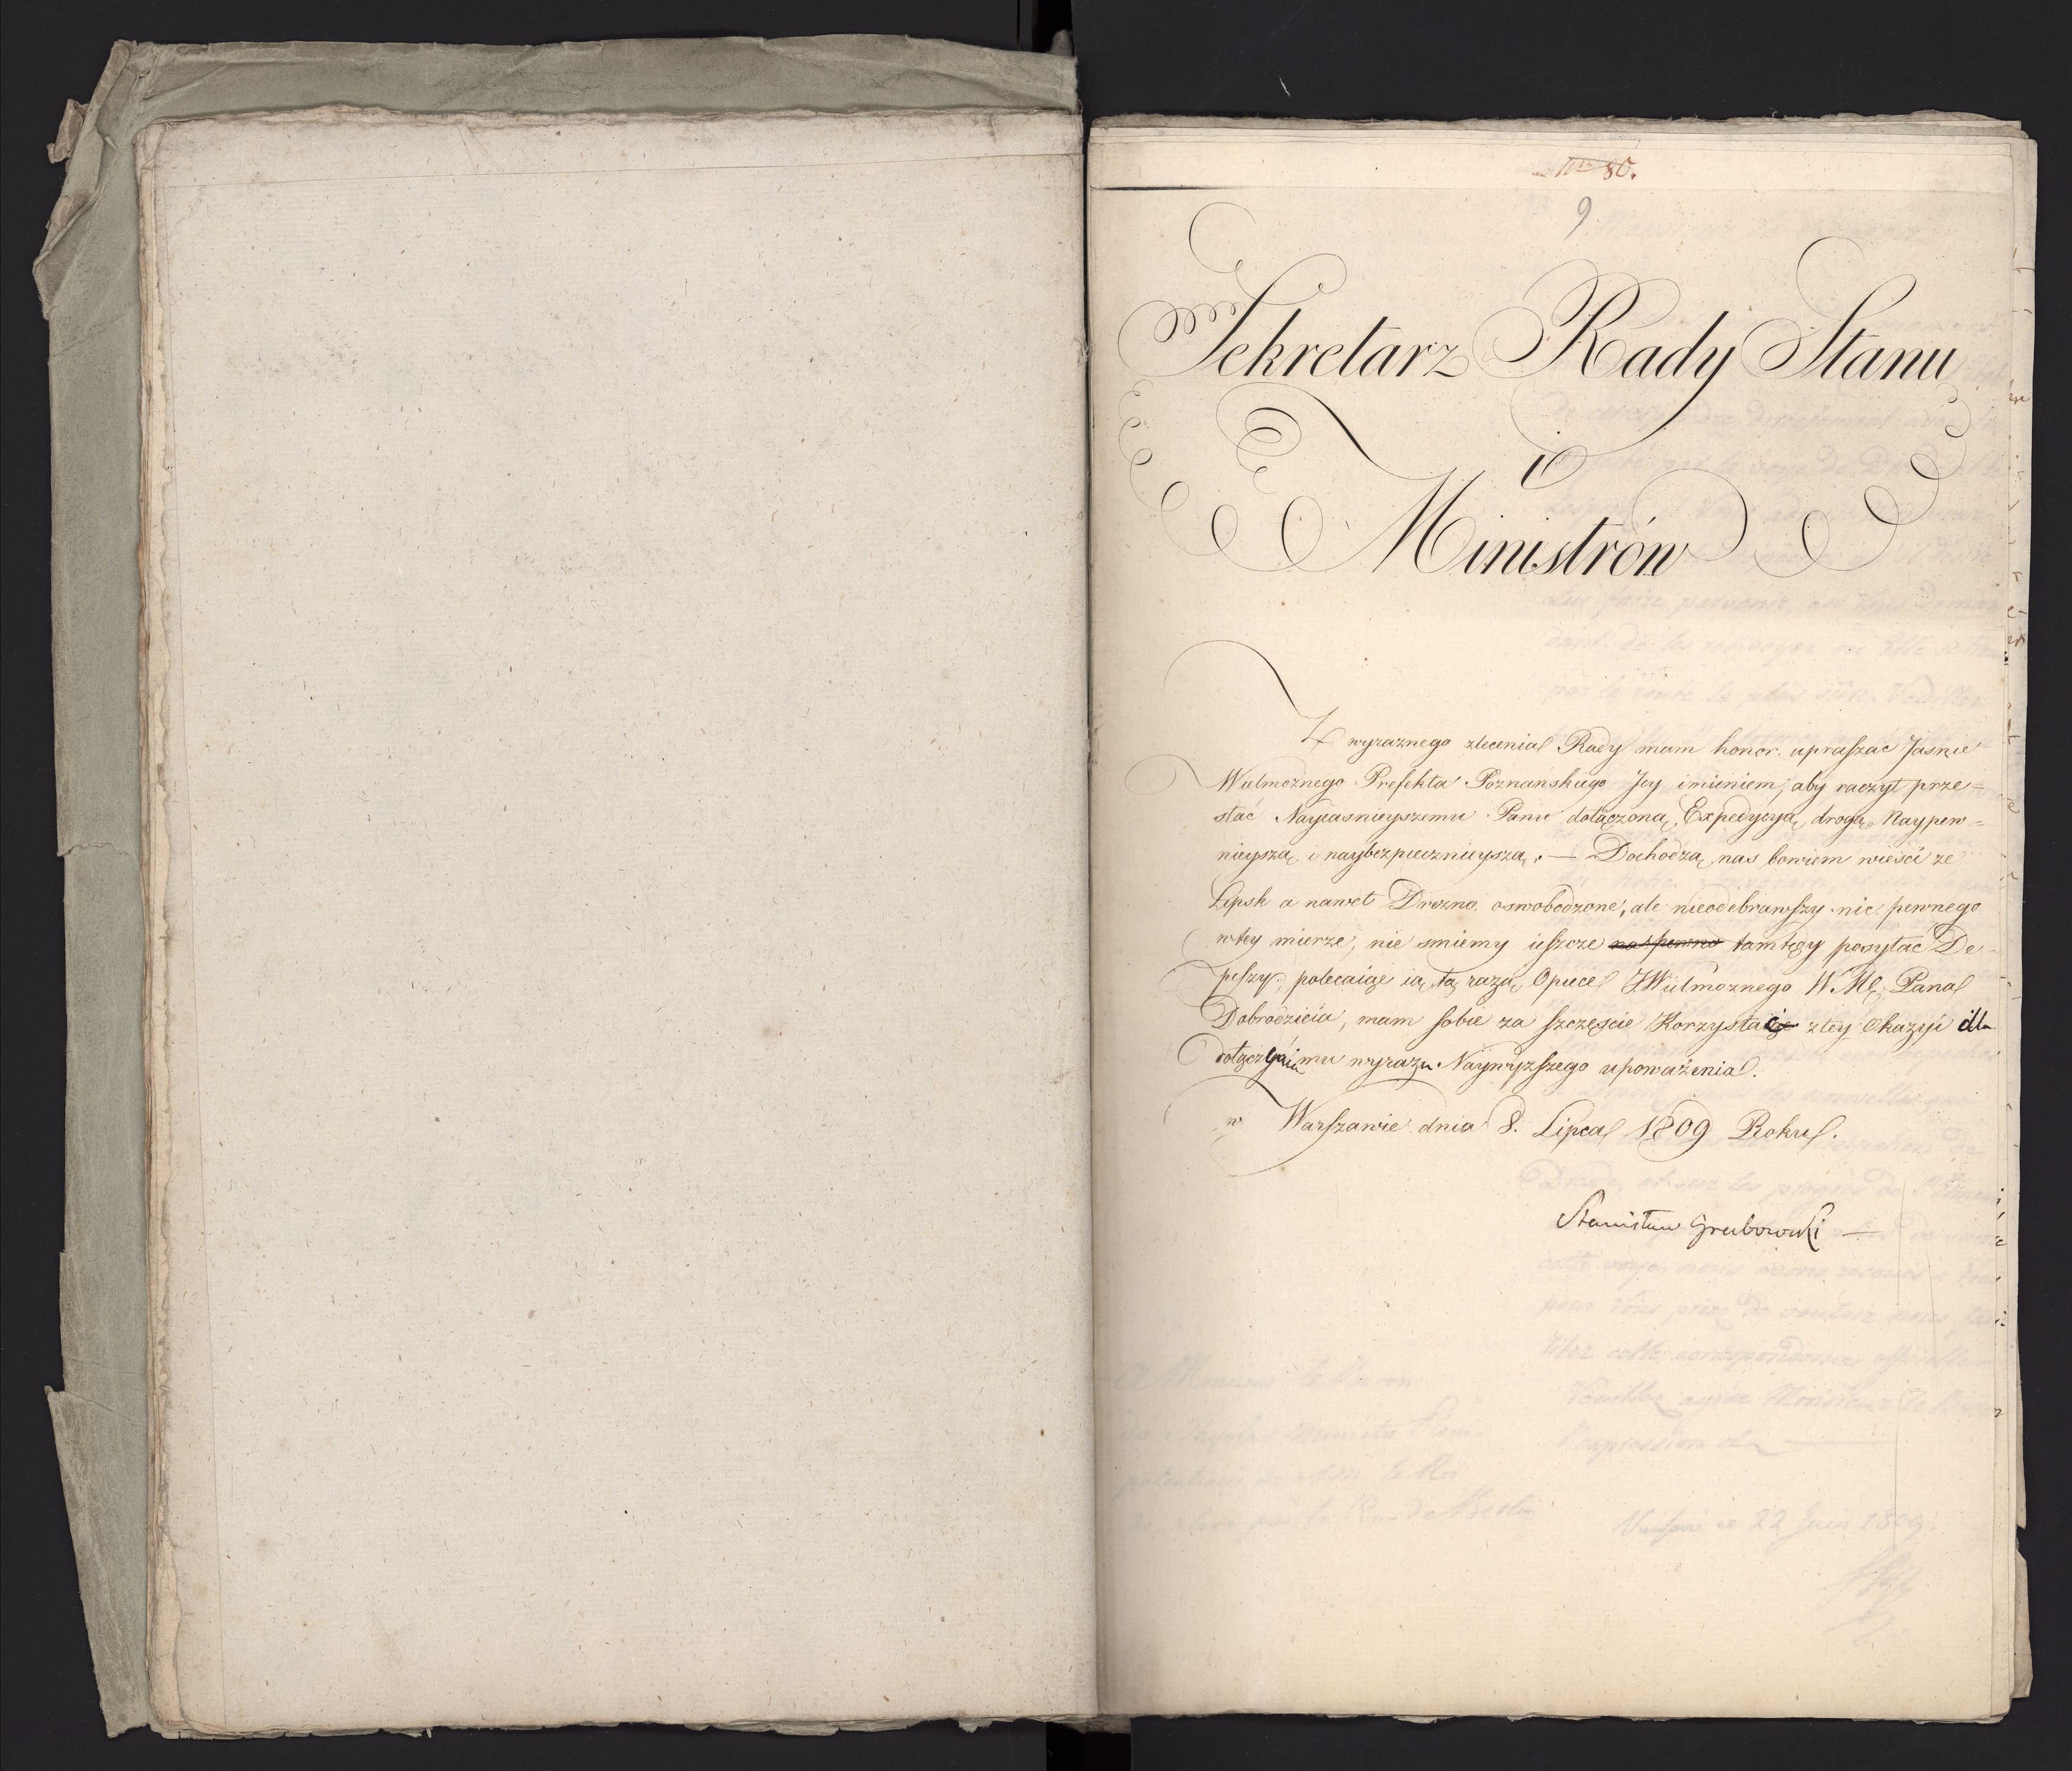 Nro 80.
9
Sekretarz Rady Stanu
i
Ministrów
Z wyraznego zlecenia Rady mam honor upraszac Jasnie
Wielmożnego Prefekta Poznanskiego Jey imieniem, aby raczył prze=
słać Nayiasnieyszemu Panu dołączoną Expedycyą drogą Naypew=
nieyszą i naybezpiecznieyszą. — Dochodzą nas bowiem wieści ze
Lipsk a nawet Drezno oswobodzone, ale nieodebrawszy nic pewnego
wtey mierze, nie smiemy ieszcze na pewno tamtędy posyłać De
peszy; polecaiąc ią tą razą Opiece JWielmożnego WMC Pana
Dobrodzieia, mam sobie za szczęście Korzystać ztey Okazyi dla
dołączenia mu wyrazu Naywyzszego upoważenia.
w Warszawie dnia 8. Lipca 1809 Roku.
Stanisław Grabowski —